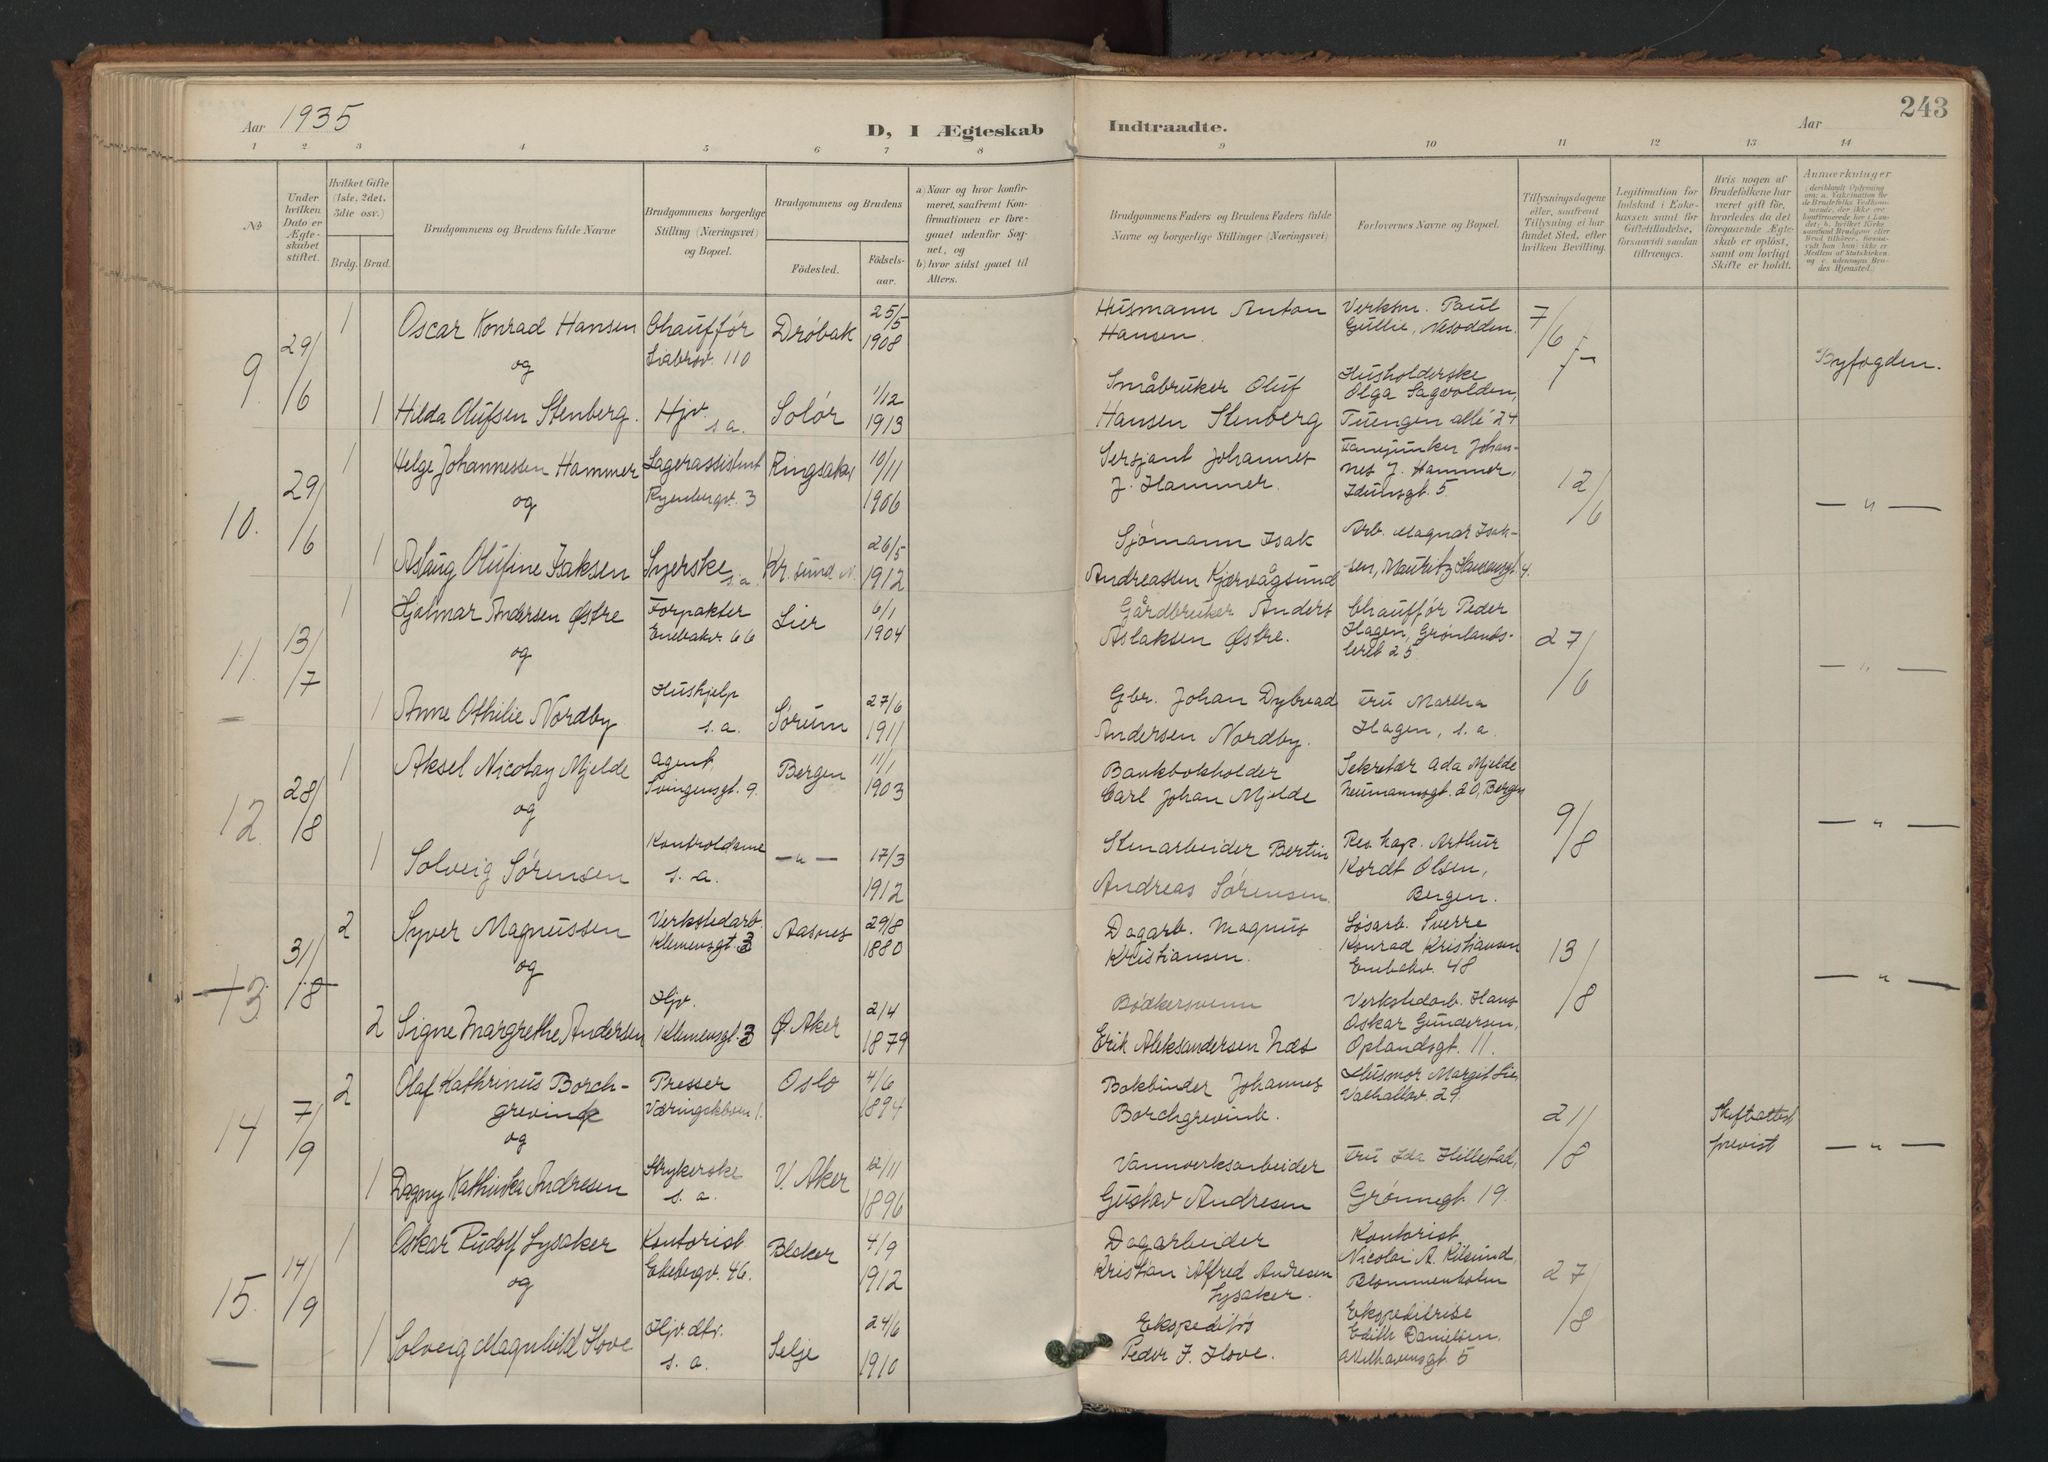 Aar 1935
D, I Ægteskab
Indtraadte.
Aar
243
1 2 3 4 5 6 7 8 9 10 11 12 13 14
№
Under hvilken Dato er Ægteskabet stiftet.
Hvilket Gifte (1ste, 2det, 3die osv.)
Brdg. Brud.
Brudgommens og Brudens fulde Navne
Brudgommens borgerlige Stilling (Næringsvei) og Bopæl.
Brudgommens og Brudens
Födested.
Födselsaar.
a) Naar og hvor konfirmeret, saafremt Konfirmationen er foregaaet udenfor Sognet, og
b) hvor sidst gaaet til Alters.
Brudgommens Faders og Brudens Faders fulde Navne og borgerlige Stillinger (Næringsvei)
Forlovernes Navne og Bopæl.
Tillysningsdagene eller, saafremt Tillysning ei har fundet Sted, efter hvilken Bevilling.
Legitimation for Indskud i Enkekassen samt for Giftetilladelse, forsaavidt saadan tiltrænges.
Hvis nogen af Brudefolkene har været gift för, hvorledes da det foregaaende Ægteskab er oplöst, samt om lovligt Skifte er holdt.
Anmærkninger
9. 29/6
1 Oscar Konrad Hansen Chauffør Liabrov. 110 Drøbak 25/5 1908
Husmann Anton Hansen.
Verksm. Paul Gullie, Nesodden.
7/6
og
Byfogden.
1 Hilda Olufsen Stenberg. Hjv. s.a. Solør 1/12 1913
Småbruker Oluf Hansen Stenberg
Husholderske Olga Sagvolden, Tuengen allé 24
10. 29/6
1 Helge Johannessen Hammer Lagerassistent Ryenbergv. 3 Ringsaker 10/11 1906
Sersjant Johannes J. Hammer.
Fanejunker Johannes J. Hammer, Idunsgt. 5.
12/6
og
— " —
1 Aslaug Olufine Isaksen Syerske s.a. Kr. sund N. 26/5 1912
Sjømann Isak Andreassen Kjærvågsund
Arb. Magnar Isaksen, Mauritz Hansensgt. 4.
11. 13/7
1 Hjalmar Andersen Østre Forpakter Enebakv. 66 Lier 6/1 1904
Gårdbruker Anders Aslaksen Østre.
Chauffør Peder Hagen, Grønlandsleret 25
27/6
og
— " —
1 Anne Othilie Nordby Hushjelp s.a. Sørum 27/6 1911
Gbr. Johan Dybvad Andersen Nordby.
Fru Martha Hagen, s.a.
12. 28/8
1 Aksel Nicolay Mjelde agent Svingensgt. 9. Bergen 11/1 1903
Bankbokholder Carl Johan Mjelde
Sekretær Ada Mjelde Neumannsgt. 20, Bergen
9/8
og
— " —
1 Solveig Sørensen Kontroldame s.a. — " — 17/3 1912
Stenarbeider Bertin Andreas Sørensen.
Res. kap. Arthur Kordt Olsen, Bergen.
13. 31/8
2 Syver Magnussen Verkstedarb. Klemensgt. 3 Aasnes 29/8 1880
Dagarb. Magnus Kristiansen.
Løsarb. Sverre Konrad Kristiansen Enebakv. 48
13/8
og
— " —
2 Signe Margrethe Andersen Hjv. Klemensgt. 3 Ø. Aker 2/4 1879
Bødkersvenn Erik Aleksandersen Næs
Verkstedarb. Hans Oskar Gundersen, Oplandsgt. 11.
14 7/9
2 Olaf Kathrinus Borchgrevink Presser Væringskbven 1. Oslo 4/6 1894
Bokbinder Johannes Borchgrevink.
Husmor Margit Lie, Valhallav. 29.
21/8
Skifteattest previst
og
— " —
1 Dagny Kathinka Andresen Strykerske s.a. V. Aker 12/11 1896
Vannverksarbeider Gustav Andresen
Fru Ida Hillestad, Grønnegt. 19.
15. 14/9
1 Oskar Rudolf Lysaker Kontorist Ekebergv. 46. Blaker 4/9 1912
Dagarbeider Kristian Alfred Andresen Lysaker.
Kontorist Nicolai A. Kilsund, Blommenholm
27/8
og
1 Solveig Magnhild Hove Hjv. dtr. s.a. Selje 24/6 1910
Ekspeditør Peder J. Hove.
Ekspeditrise Edith Danielsen.